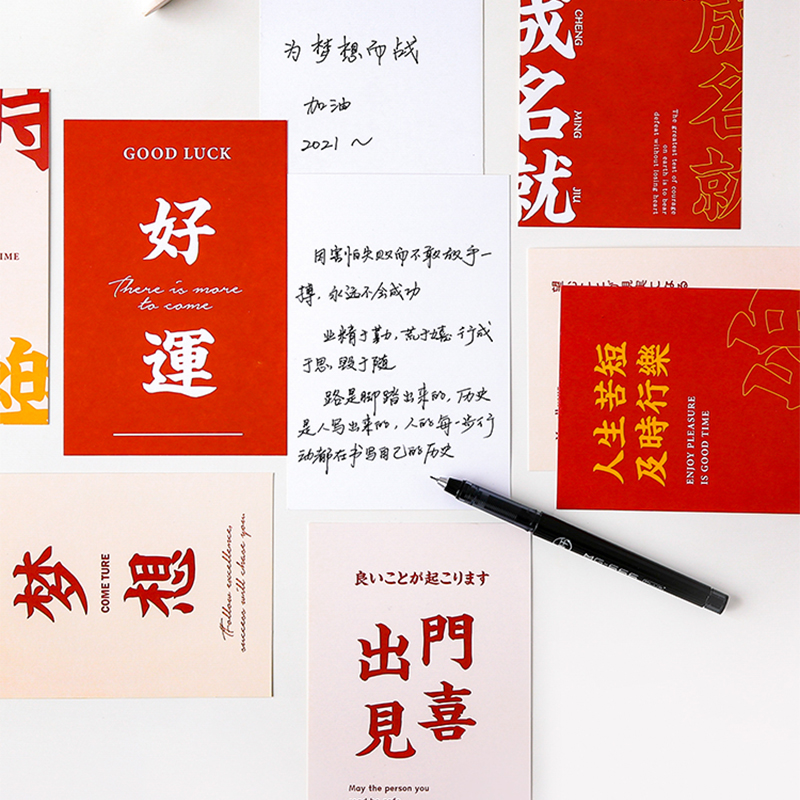 为梦想而战
加油
2021 ~
成名就
CHENG
MING
JIU
成名就
The greatest test of courage
on earth is to bear
defeat without losing heart
GOOD LUCK
好
There is more
to come
運
TIME
因害怕失败而不敢放手一
搏，永远不会成功
业精于勤，荒于嬉 行成
于思，毁于随
路是脚踏出来的，历史
是人写出来的，人的每一步行
动都在书写自己的历史
人生苦短
及時行樂
ENJOY PLEASURE
IS GOOD TIME
梦
COME TURE
想
Follow excellence,
success will chase you.
良いことが起こります
出門
見喜
May the person you